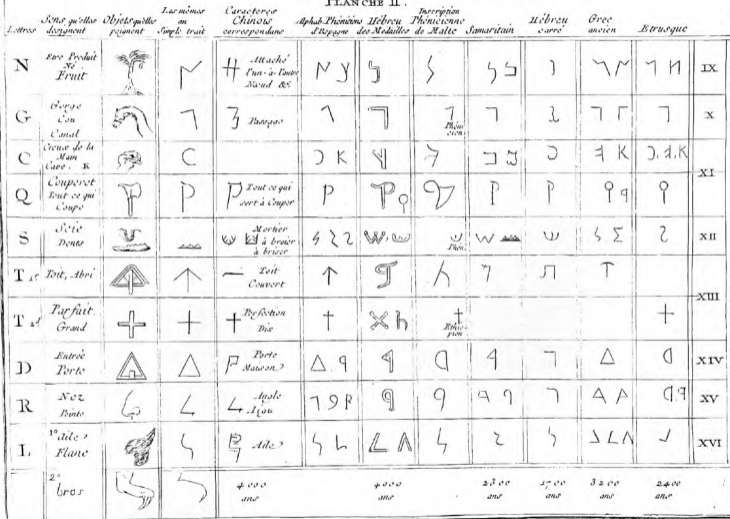 PLANCHE II.
Lettres Sens qu'elles désignent Objets qu'elles peignent Les mêmes au Simple trait Caracteres Chinois correspondans Alphab. Phénicien d'Espagne Hébreu des Médailles Inscription Phénicienne de Malte Samaritain Hébreu carré Grec ancien Etrusque
N Etre Produit Né Fruit Attaché l'un-à-l'autre Nœud &c. IX
G Gorge Cou Canal Passage Phénicien X
C Creux de la Main Cave. K XI
Q Couperet Tout ce qui Coupe Tout ce qui sert à Couper
S Scie Dents Mortier à broier à briser Phén. XII
T 1er Toit, Abri Toit Couvert XIII
T 2d Parfait Grand Perfection Dix Ethiopien
D Entrée Porte Porte Maison XIV
R Nez Pointe Angle Aigu XV
L 1° Aile Flanc Aile XVI
2° bras 4000 ans 4000 ans 2300 ans 1700 ans 3200 ans 2400 ans